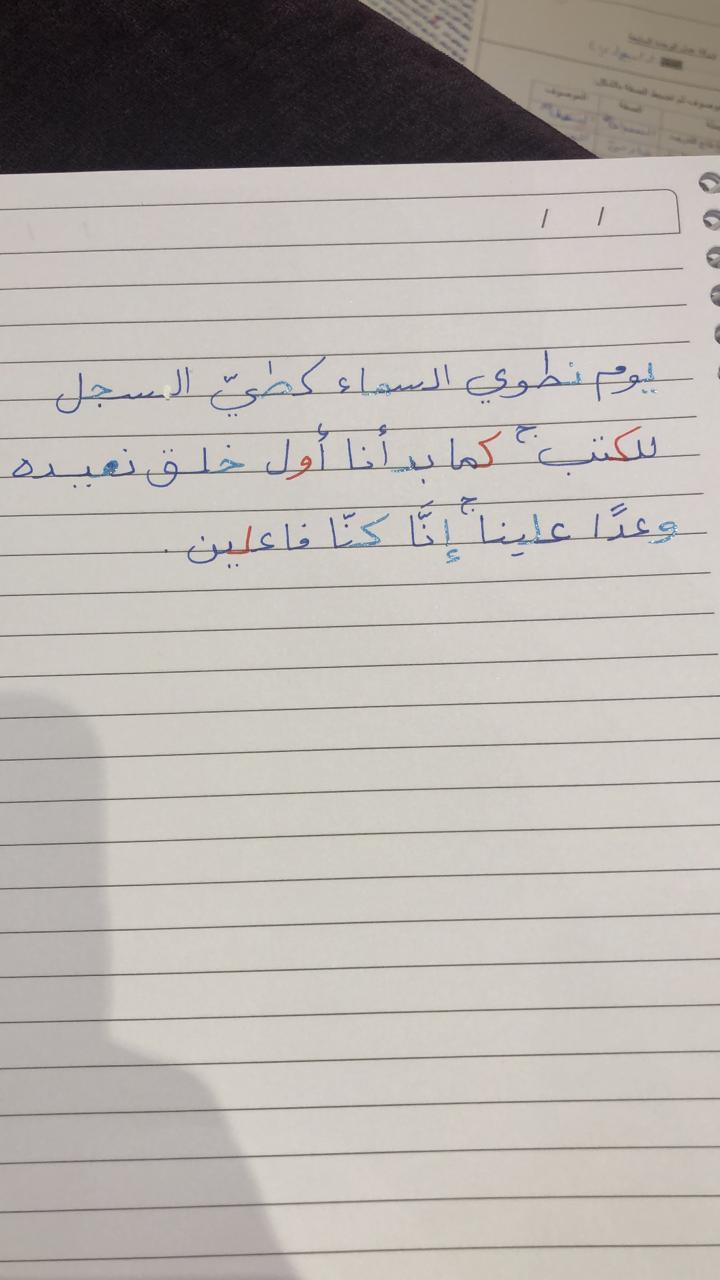 / /
يوم نطوي السماء كطيّ السجل
للكتب ۚ كما بدأنا أول خلق نعيده
وعدًا علينا ۚ إنَّا كنّا فاعلين .